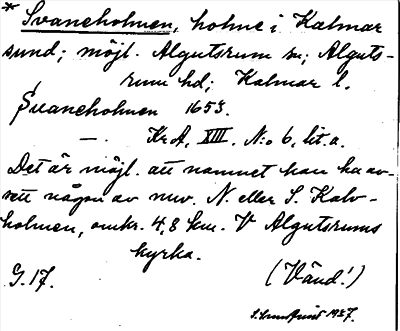 * Svaneholmen, holme i Kalmar
sund; möjl. Algutsrum sn; Alguts-
rum hd; Kalmar l.
Suaneholmen 1653.
—. Kr A, XIII. N:o 6, lit. a.
Det är möjl. att namnet kan ha av-
sett någon av nuv. N. eller S. Kalv-
holmen, omkr. 4,8 km. V Algutsrums
kyrka.
G. 17. (Vänd!)
1937.